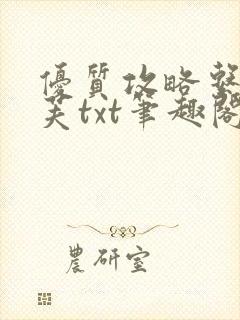 優質攻略整
芙txt筆趣閣
農研室